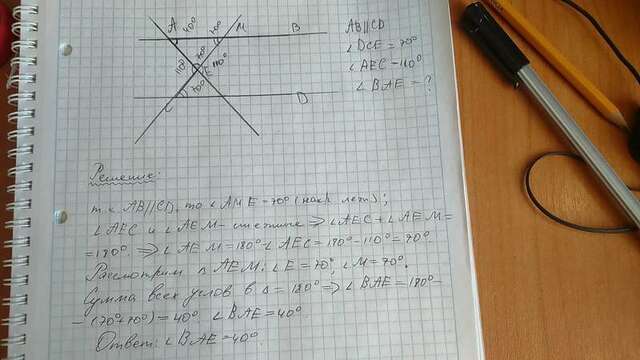 A 40° 70° M B
70°
110° E 110°
70°
C D
AB||CD
∠DCE = 70°
∠AEC - 110°
∠BAE = ?
Решение:
т.к. AB||CD, то ∠AME = 70° (накр. леж);
∠AEC и ∠AEM - смежные ⇒ ∠AEC + ∠AEM =
= 180°. ⇒ ∠AEM = 180° - ∠AEC = 180° - 110° = 70°.
Рассмотрим △ AEM: ∠E = 70°, ∠M = 70°.
Сумма всех углов в △ = 180° ⇒ ∠BAE = 180° -
- (70° + 70°) = 40°. ∠BAE = 40°.
Ответ: ∠BAE = 40°.